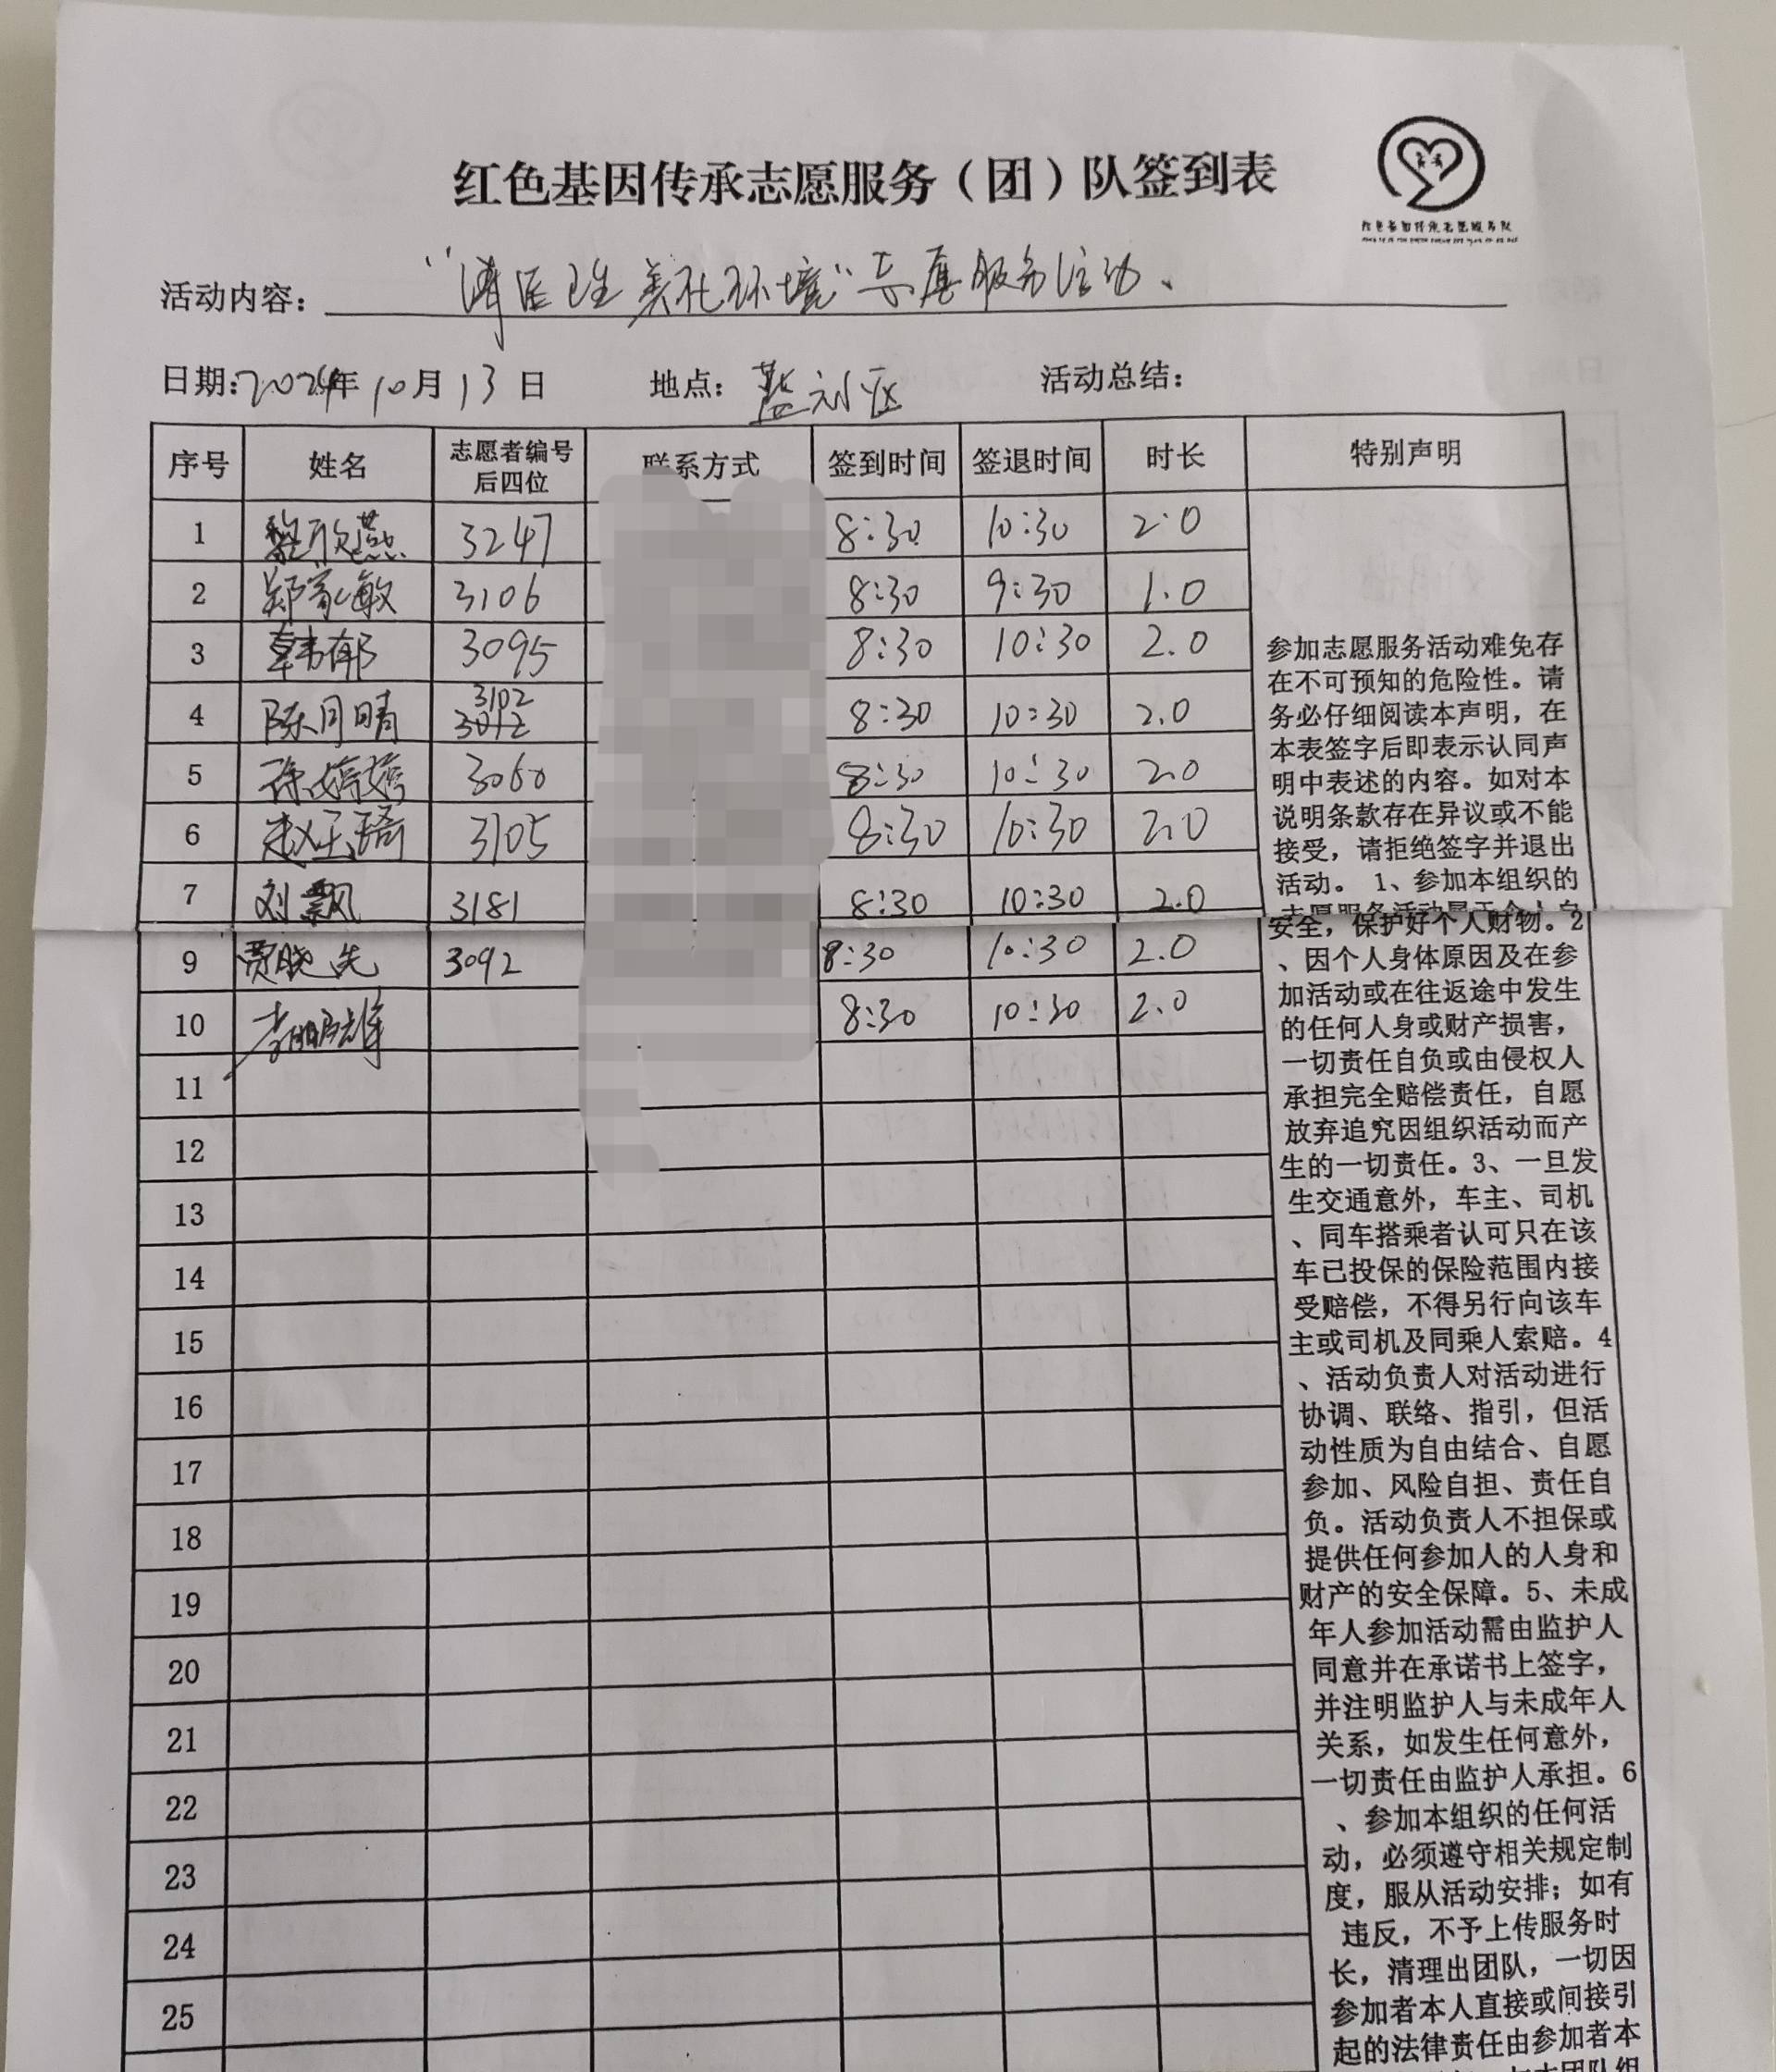 红色基因传承志愿服务（团）队签到表
活动内容： “清医卫生 美化环境”志愿服务活动、
日期:2024年10月13日 地点： 活动总结：
序号 姓名 志愿者编号后四位 联系方式 签到时间 签退时间 时长 特别声明
1 黎欣燕 3247 8:30 10:30 2.0
2 郑 敏 3106 8:30 9:30 1.0
3 韩郁 3095 8:30 10:30 2.0
4 陈月晴 3102 8:30 10:30 2.0
5 徐婷婷 3060 8:30 10:30 2.0
6 赵玉琦 3105 8:30 10:30 2.0
7 刘飘 3181 8:30 10:30 2.0
9 贾晓先 3092 8:30 10:30 2.0
10 8:30 10:30 2.0
11
12
13
14
15
16
17
18
19
20
21
22
23
24
25
参加志愿服务活动难免存
在不可预知的危险性。请
务必仔细阅读本声明，在
本表签字后即表示认同声
明中表述的内容。如对本
说明条款存在异议或不能
接受，请拒绝签字并退出
活动。 1、参加本组织的
安全，保护好个人财物。2
、因个人身体原因及在参
加活动或在往返途中发生
的任何人身或财产损害，
一切责任自负或由侵权人
承担完全赔偿责任，自愿
放弃追究因组织活动而产
生的一切责任。3、一旦发
生交通意外，车主、司机
、同车搭乘者认可只在该
车已投保的保险范围内接
受赔偿，不得另行向该车
主或司机及同乘人索赔。4
、活动负责人对活动进行
协调、联络、指引，但活
动性质为自由结合、自愿
参加、风险自担、责任自
负。活动负责人不担保或
提供任何参加人的人身和
财产的安全保障。5、未成
年人参加活动需由监护人
同意并在承诺书上签字，
并注明监护人与未成年人
关系，如发生任何意外，
一切责任由监护人承担。6
、参加本组织的任何活
动，必须遵守相关规定制
度，服从活动安排；如有
违反，不予上传服务时
长，清理出团队，一切因
参加者本人直接或间接引
起的法律责任由参加者本